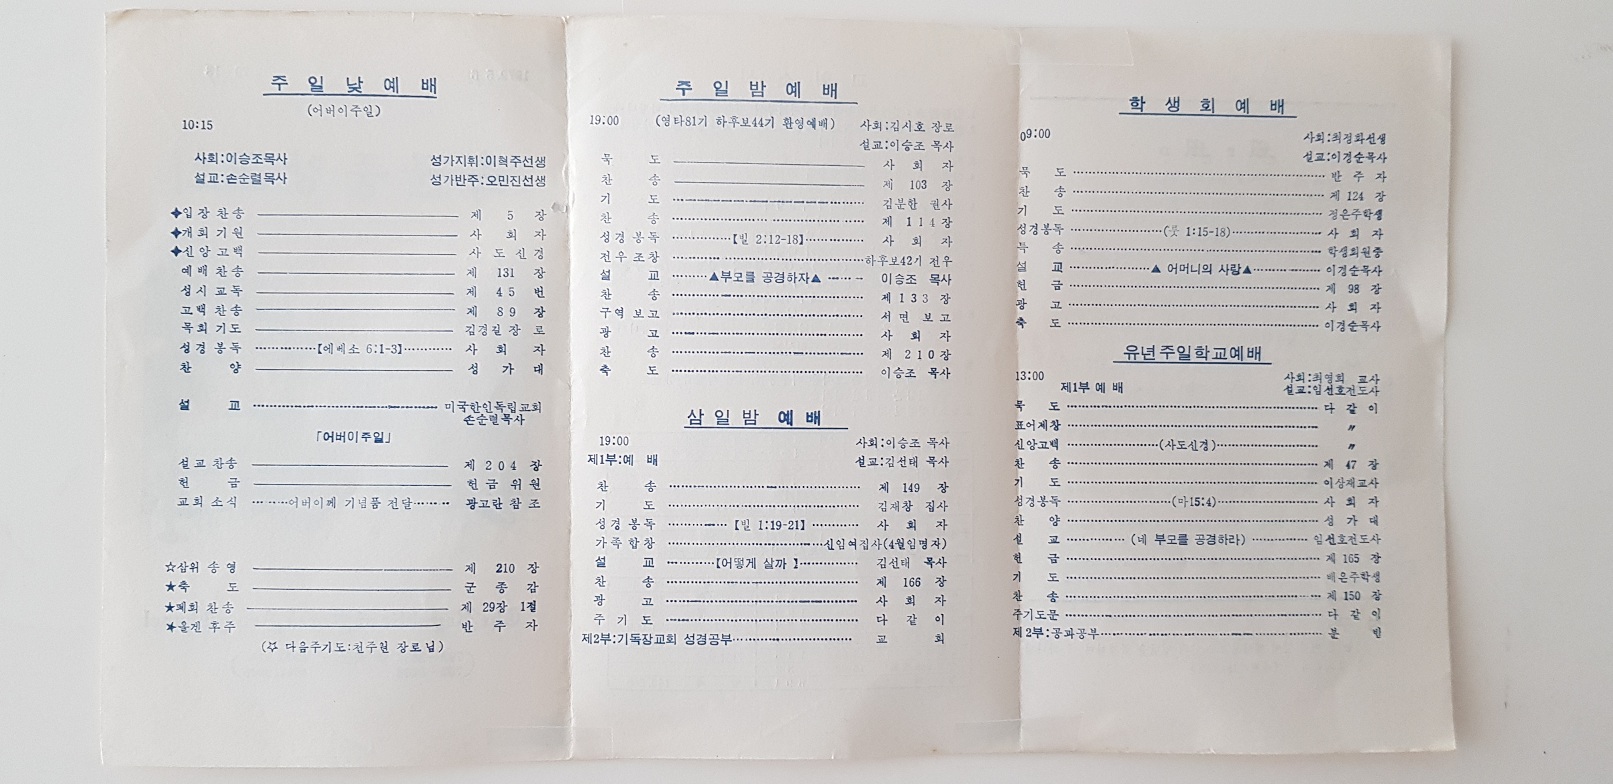 주 일 낮 예 배
(어버이주일)
10:15
사회:이승조목사 성가지휘:이혁주선생
설교:손순렬목사 성가반주:오민진선생
✦입 장 찬 송 제 5 장
✦개 회 기 원 사 회 자
✦신 앙 고 백 사 도 신 경
예 배 찬 송 제 131 장
성 시 교 독 제 4 5 번
고 백 찬 송 제 8 9 장
목 회 기 도 김경길 장 로
성 경 봉 독 【에베소 6:1-3】 사 회 자
찬 양 성 가 대
설 교 미국한인독립교회
손순렬목사
「어버이주일」
설 교 찬 송 제 2 0 4 장
헌 금 헌 금 위 원
교 회 소 식 어버이께 기념품 전달 광고란 참 조
☆삼위 송 영 제 210 장
★축 도 군 종 감
★폐회 찬 송 제 29장 1절
★올겐 후 주 반 주 자
(☆ 다음주기도:천주원 장로님)
주 일 밤 예 배
19:00 (영타81기 하후보44기 환영예배) 사회:김시호 장로
설교:이승조 목사
묵 도 사 회 자
찬 송 제 103 장
기 도 김분한 권사
찬 송 제 1 1 4 장
성 경 봉 독 【빌 2:12-18】 사 회 자
전 우 조 창 하후보42기 전우
설 교 ▲부모를 공경하자▲ 이승조 목사
찬 송 제 1 3 3 장
구 역 보 고 서 면 보 고
광 고 사 회 자
찬 송 제 2 1 0 장
축 도 이승조 목사
삼 일 밤 예 배
19:00 사회:이승조 목사
제1부:예 배 설교:김선태 목사
찬 송 제 149 장
기 도 김재창 집사
성 경 봉 독 【빌 1:19-21】 사 회 자
가 족 합 창 신임여집사(4월임명자)
설 교 【어떻게 살까 】 김선태 목사
찬 송 제 166 장
광 고 사 회 자
주 기 도 다 같 이
제2부:기독장교회 성경공부 교 회
학 생 회 예 배
09:00 사회:최정화선생
설교:이경순목사
묵 도 반 주 자
찬 송 제 124 장
기 도 정은주학생
성경봉독 (룻 1:15-18) 사 회 자
특 송 학생회원중
설 교 ▲ 어머니의 사랑▲ 이경순목사
헌 금 제 98 장
광 고 사 회 자
축 도 이경순목사
유년주일학교예배
13:00 사회:최영희 교사
제1부 예 배 설교:임선호전도사
묵 도 다 같 이
표어제창 〃
신앙고백 (사도신경) 〃
찬 송 제 47 장
기 도 이상재교사
성경봉독 (마15:4) 사 회 자
찬 양 성 가 대
설 교 (네 부모를 공경하라) 임선호전도사
헌 금 제 165 장
기 도 배은주학생
찬 송 제 150 장
주기도문 다 같 이
제2부:공과공부 분 반